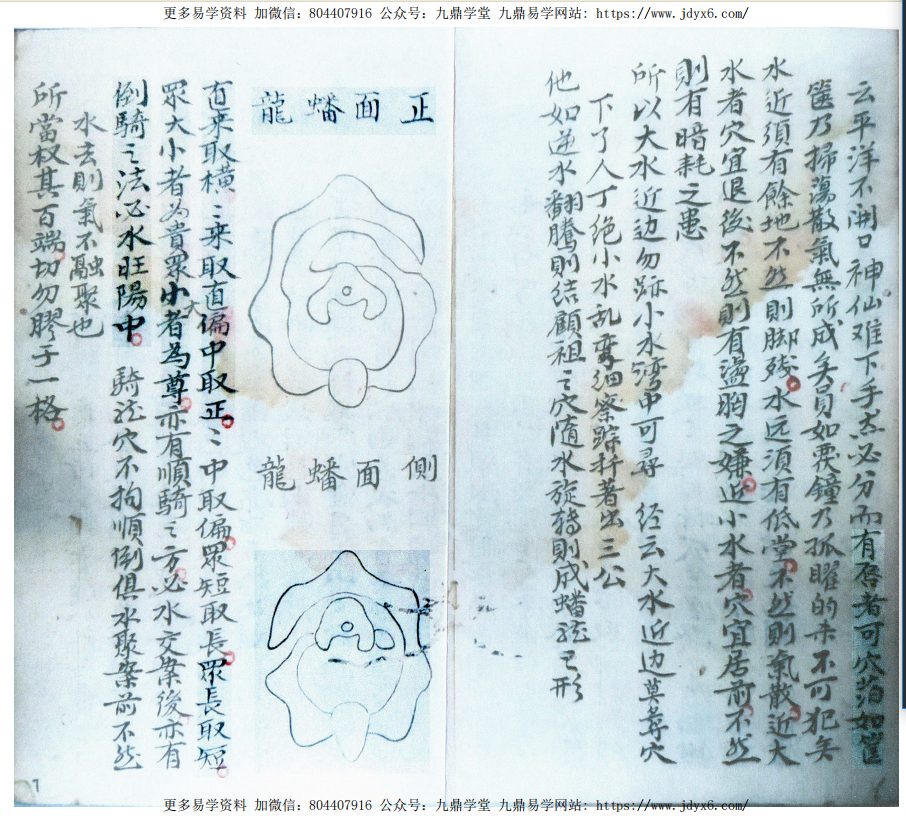 更多易学资料 加微信：804407916 公众号：九鼎学堂 九鼎易学网站：https://www.jdyx6.com/
云平洋不開口神仙难下手杰必分而有唇者可穴萡如筐
篋乃掃蕩散氣無所成矣員如覆鐘乃孤曜的未不可犯矣
水近須有餘地不然則脚残水远須有低堂不然則氣散近大
水者穴宜退後不然則有盪胸之嫌近小水者穴宜居前不然
則有暗耗之患
所以大水近边勿跡小水湾中可尋 经云大水近边莫尋穴
下了人丁绝小水乱弯细察踪扦著出三公
他如逆水翻騰則结顧祖之穴隨水旋转則成蟠龙已形
正面蟠龍
側面蟠龍
直来取橫橫来取直偏中取正正中取偏眾短取長眾長取短
眾大小者為貴眾小者為尊亦有順騎之方必水交案後亦有
倒騎之法必水旺陽中 騎龙穴不拘順倒俱水聚案前不然
水去則氣不融聚也
所當权其百端切勿膠于一格
7
更多易学资料 加微信：804407916 公众号：九鼎学堂 九鼎易学网站：https://www.jdyx6.com/